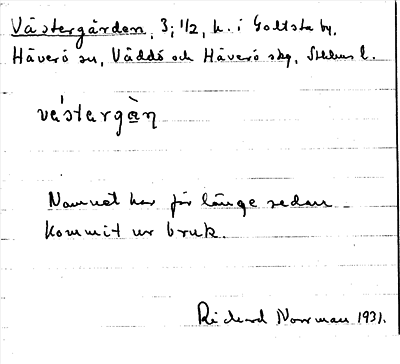 Västergården, 3; 1/2, h. i Goltsta by,
Häverö sn, Väddö och Häverö skg, Sthlms l.
vástargàn̥
Namnet har för länge sedan
kommit ur bruk.
Richard Norrman 1931.